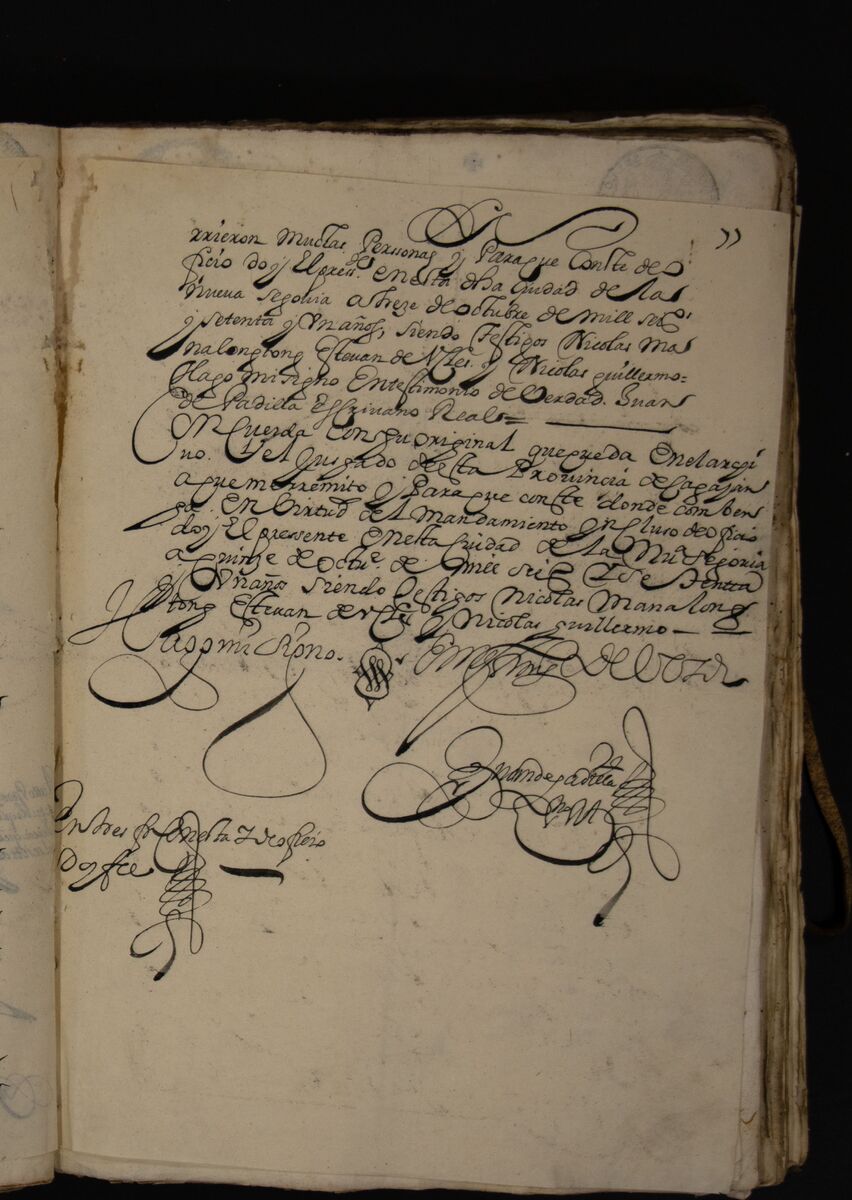 11
rrieron muchas Perssonas y Paraque Conste deo
ficio doy El press.te en esta dha Ciudad de la
nueva segovia a treze de octubre de mill seis.os
y setenta y Un años, siendo testigos Nicolas ma
nalongtong Estevan de y Nicolas guillermo=
Hago mi signo En testimonio de Verdad. Juan
de Padilla Escrivano Real=
Concuerda Con su original que queda En el archi
vo. del Juzgado desta Provincia de cagayan
a que me rremito y Para que conste donde comben
ga. En Virtud del Mandamiento yncluso de oficio
doy El pressente En esta Ciudad de La nu.a segovia
a quinze de octu.e de mill seis.s y setenta
y Un años siendo testigos Nicolas Manalong
tong Estevan de y Nicolas guillermo
Hago mi signo. En testimonio de Verd
Juan de padilla
En tres fs Con esta y de oficio
Doy fee